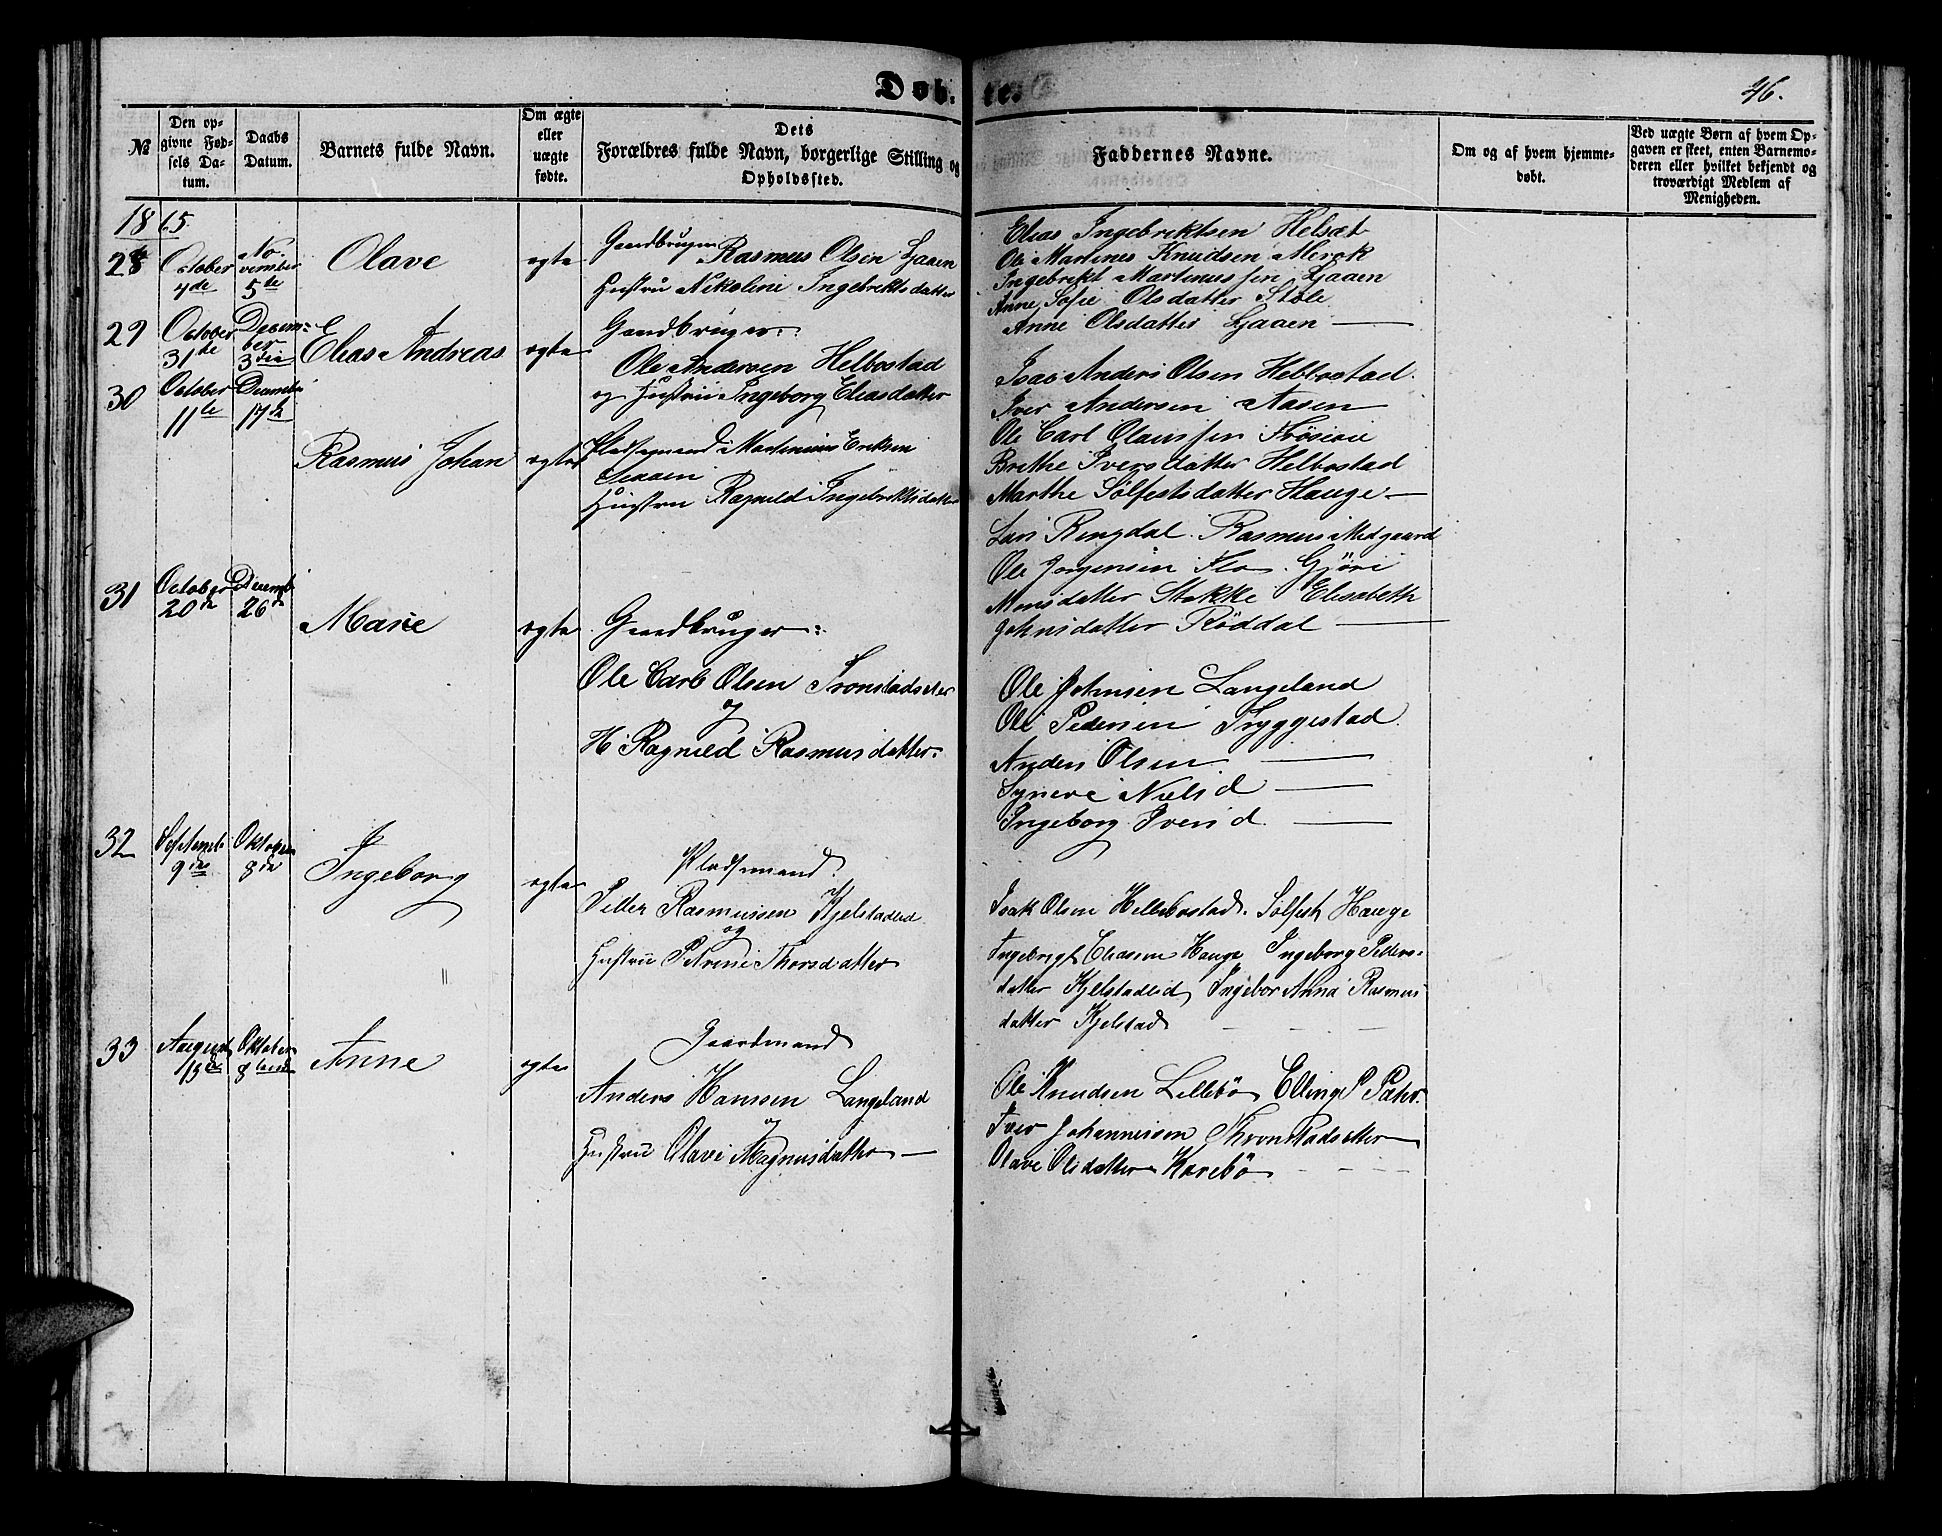 Døb- te.
46.
№
Den op-
givne Fød-
sels Da-
tum.
Daabs
Datum.
Barnets fulde Navn.
Om ægte
eller
uægte
fødte.
Dets
Forældres fulde Navn, borgerlige Stilling og
Opholdssted.
Faddernes Navne.
Om og af hvem hjemme-
døbt.
Ved uægte Børn af hvem Op-
gaven er skeet, enten Barnemo-
deren eller hvilket bekjendt og
troværdigt Medlem af
Menigheden.
1865.
28
October
4de
No-
vember
5te
Olave
ægte
Gaardbruger Rasmus Olsen Ljaaen
Hustru Nikoline Ingebriktsdatter
Elias Ingebriktsen Helsæt
Ole Martines Knudsen Merok
Ingebrikt Martinussen Ljaaen
Anne Sofie Olsdatter Støle
Anne Olsdatter Ljaaen
29
October
31te
Decem-
ber
3die
Elias Andreas
ægte
Gaardbruger
Ole Andersen Helbostad
og Hustru Ingeborg Eliasdatter
Isac Anders Olsen Helbostad.
Iver Andersen Aasen
Ole Carl Olaussen
Brithe Iversdatter Helbostad
Marthe Sølfestsdatter Hauge
30
October
11te
Decembr
17de
Rasmus Johan
ægte
Pladsemand Martinus Eriksen
Hustru Ragnild Ingebriktsdatter
Lars Ringdal. Rasmus Midgaard
Ole Jørgensen Flo. Gjøri
Monsdatter Stokke Elisabeth
Johnsdatter Røddal
31
October
20de
Decemb
26de
Marie
ægte
Gaardbruger
Ole Carl Olsen Tronstadsæter
og
H. Ragnild Rasmusdatter
Ole Johnsen Langeland
Ole Pedersen Tryggestad.
Anders Olsen
Synève Niels d
Ingeborg Ivers d.
32
Septemb
9de
Oktober
8de
Ingeborg
ægte
Pladsemand
Petter Rasmussen Kjelstadlid
og
Hustru Petrine Thorsdatter
Isak Olsen Hellebostad. Sølfest Hauge
Ingebrigt Eliasen Hauge Ingeborg Peders-
datter Kjelstadlid Ingebor Anna Rasmus
datter Kjelstad
33
August
13de
Oktober
8
Anne
ægte
Gaardmand
Anders Hanssen Langeland
og
Hustru Olave Magnusdatter
Ole Knudsen Lillebø Elling P. Sæter.
Iver Johannessen Thronstadsætter
Olave Olsdatter Korsbø